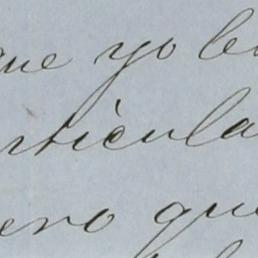 que yo le
rticula
ero que